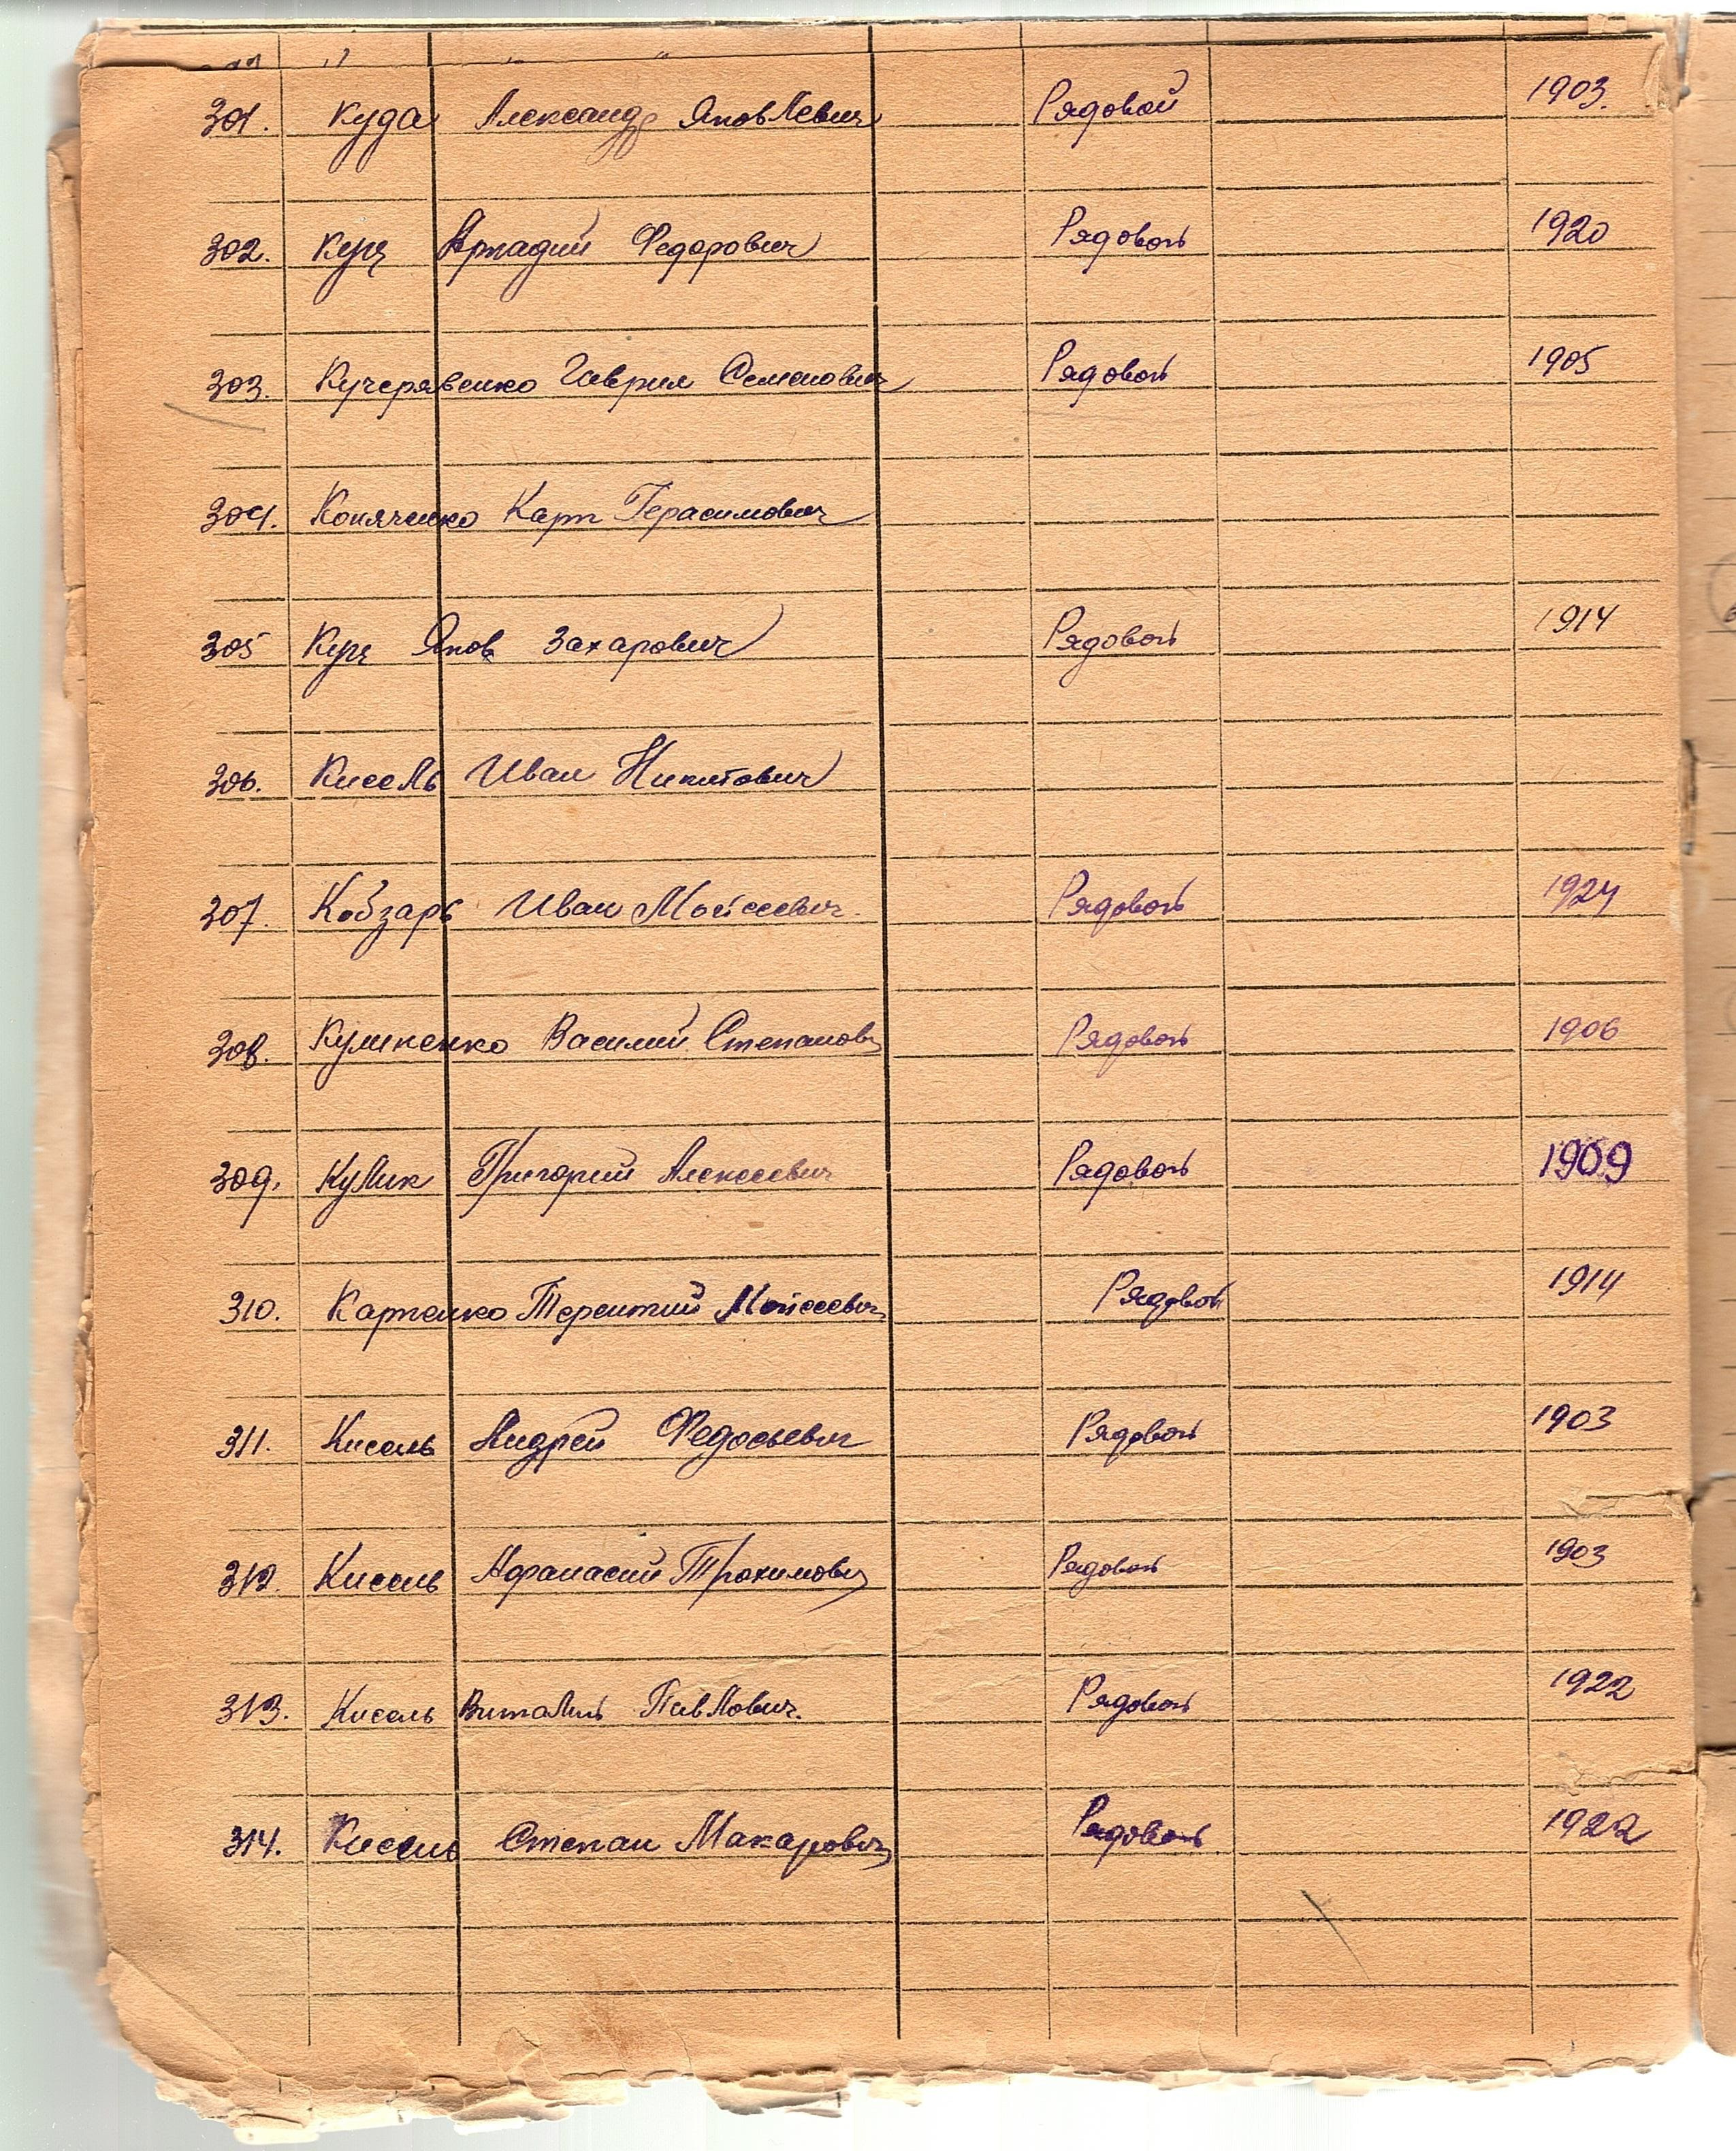 301. Куда Александр Яковлевич Рядовой 1903.
302. Куц Аркадий Федорович Рядовой 1920
303. Кучерявенко Гаврил Семенович Рядовой 1905
304. Коняченко Карп Герасимович
305 Куц Яков Захарович Рядовой 1914
306. Кисель Иван Никитович
307. Кобзарь Иван Мойсеевич. Рядовой 1924
308. Василий Степанович Рядовой 1906
309. Кулик Григорий Алексеевич Рядовой 1909
310. Карпенко Терентий Мойсеевич Рядовой 1914
311. Кисель Андрей Федосьевич Рядовой 1903
312. Кисель Афанасий Трохимович Рядовой 1903
313. Кисель Виталий Павлович. Рядовой 1922
314. Кисель Степан Макарович Рядовой 1922